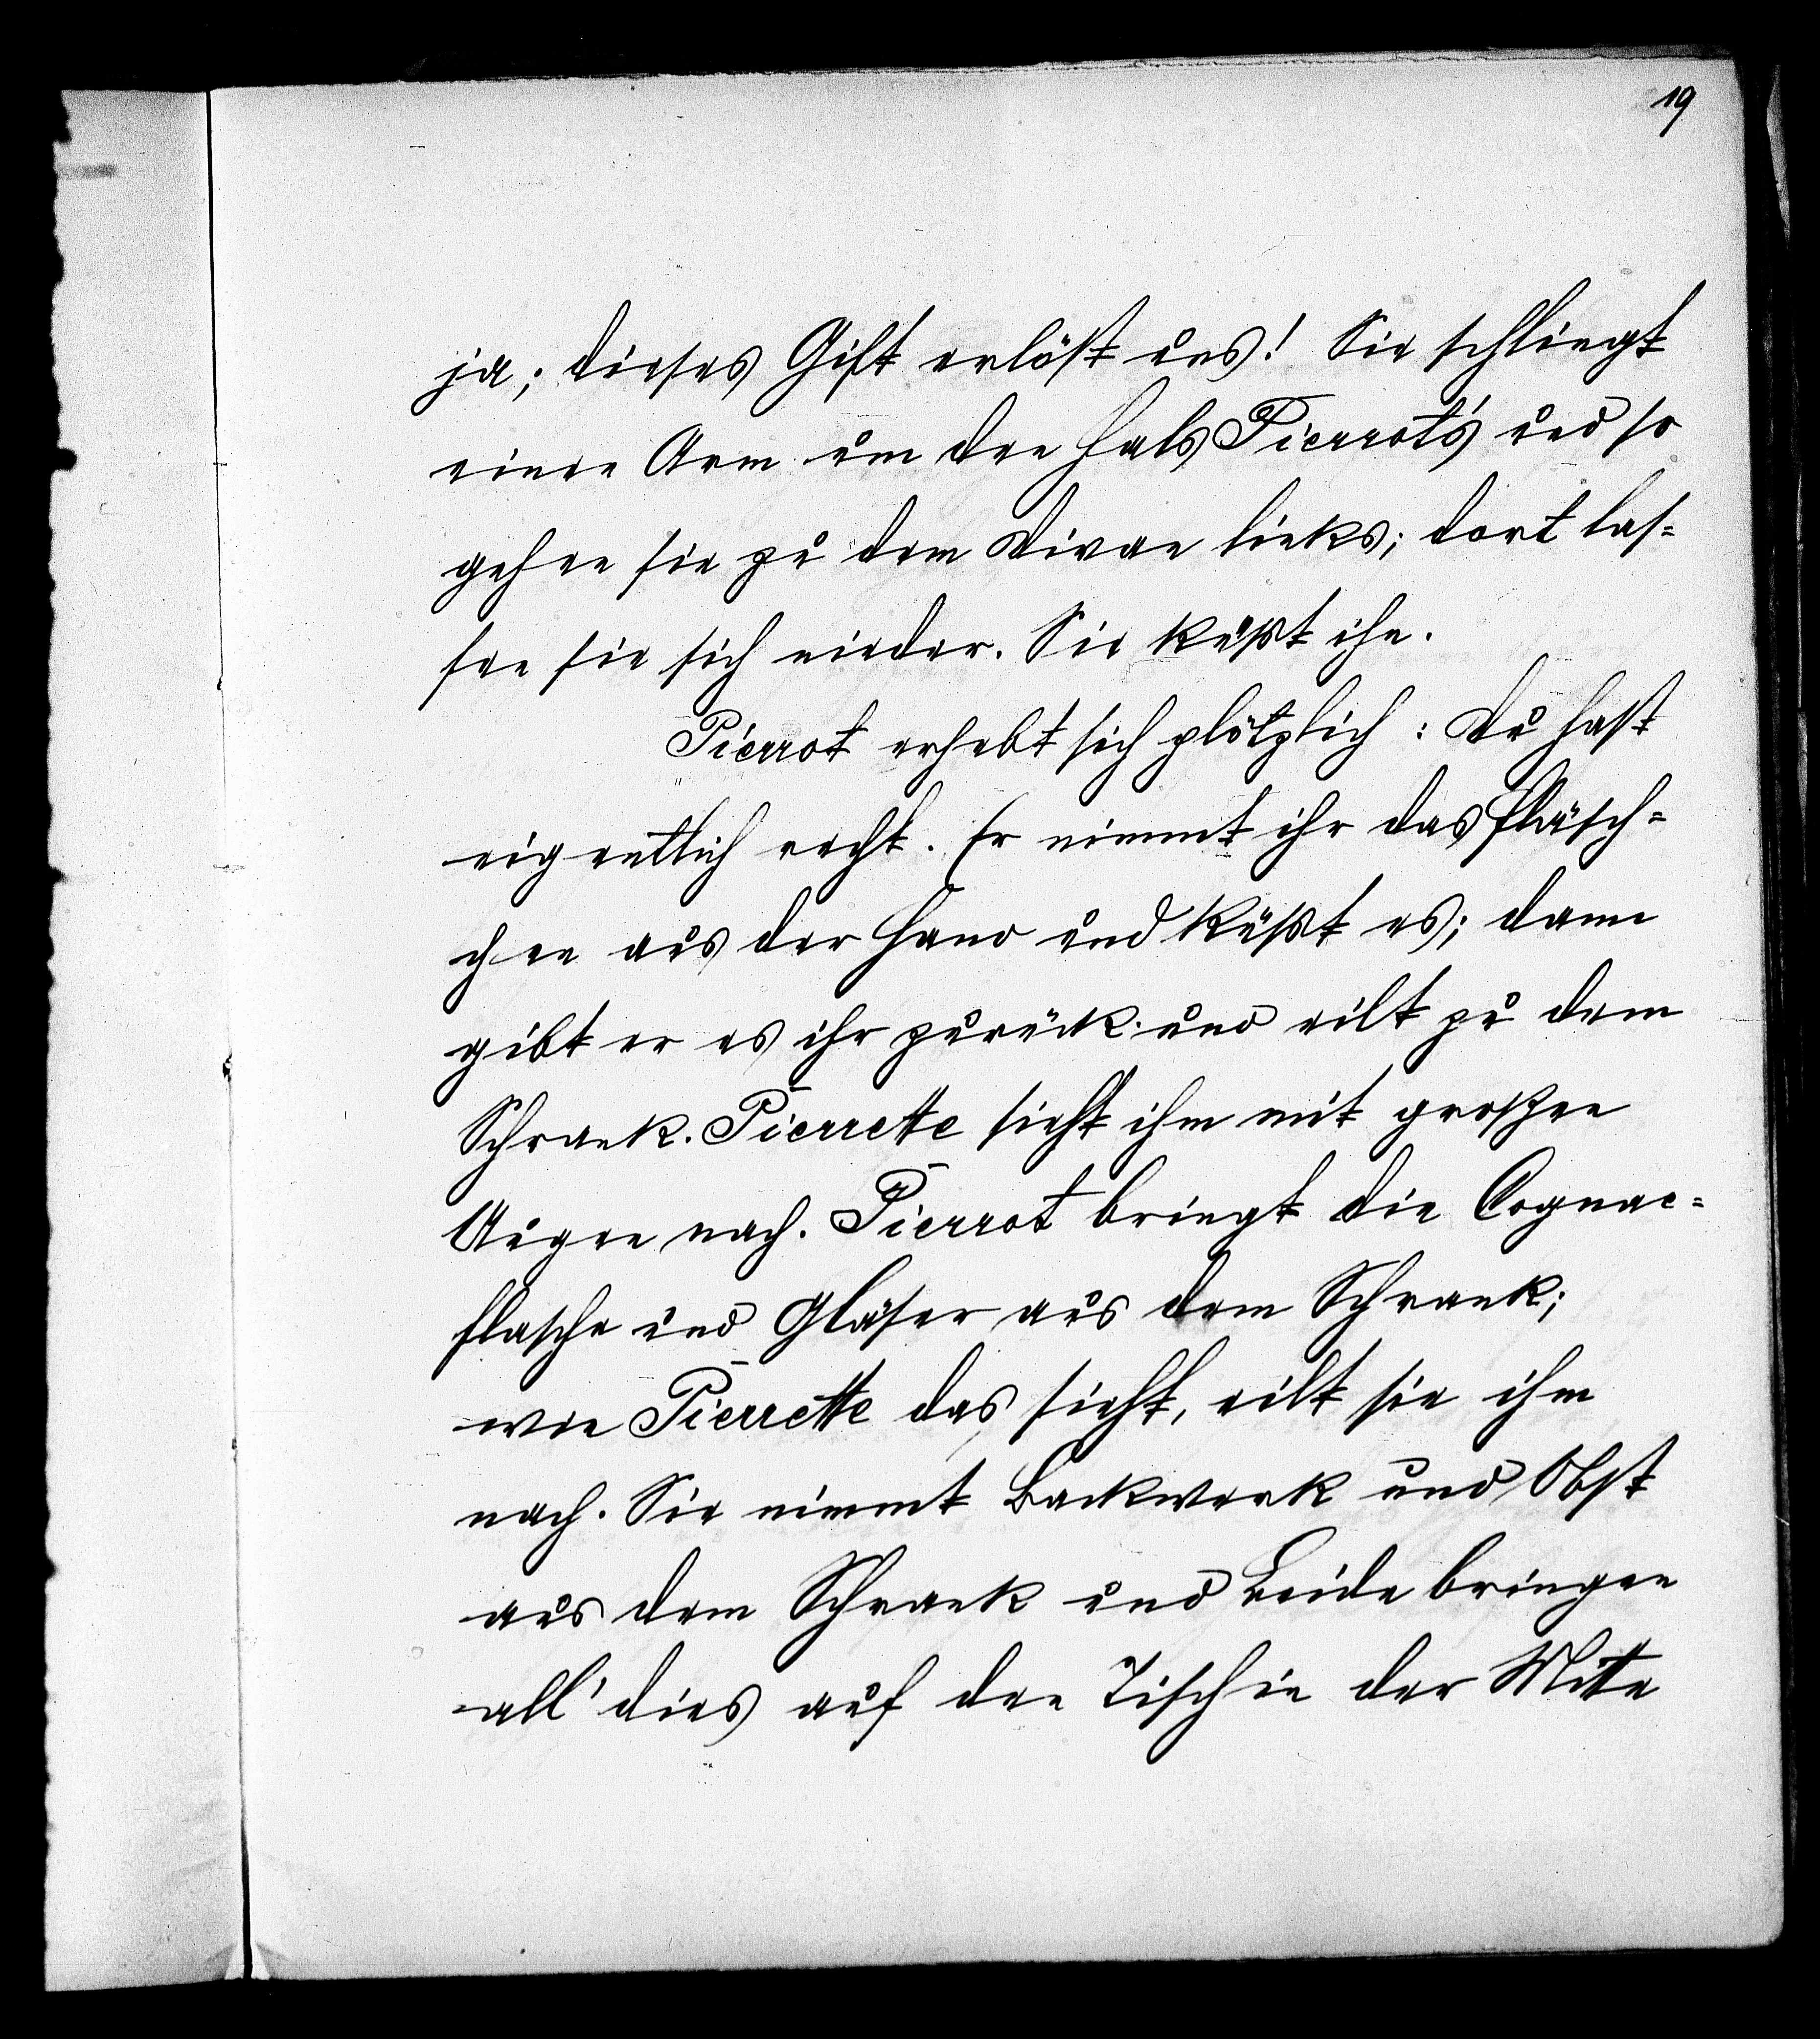 19
ja; dieses Gift erlöst uns! Sie schlingt
einen Arm um den Hals Pierrot's und so
gehen sie zu dem Divan links; dort las=
sen sie sich nieder. Sie küßt ihn.
Pierrot erhebt sich plötzlich: Du hast
eigentlich recht. Er nimmt ihr das Fläsch=
chen aus der Hand und küßt es; dann
gibt er es ihr zurück und eilt zu dem
Schrank. Pierrette sieht ihm mit großen
Augen nach. Pierrot bringt die Cognac=
flasche und Gläser aus dem Schrank;
wie Pierrette das sieht, eilt sie ihm
nach. Sie nimmt Backwerk und Obst
aus dem Schrank und Beide bringen
all' dies auf den Tisch in der Mitte